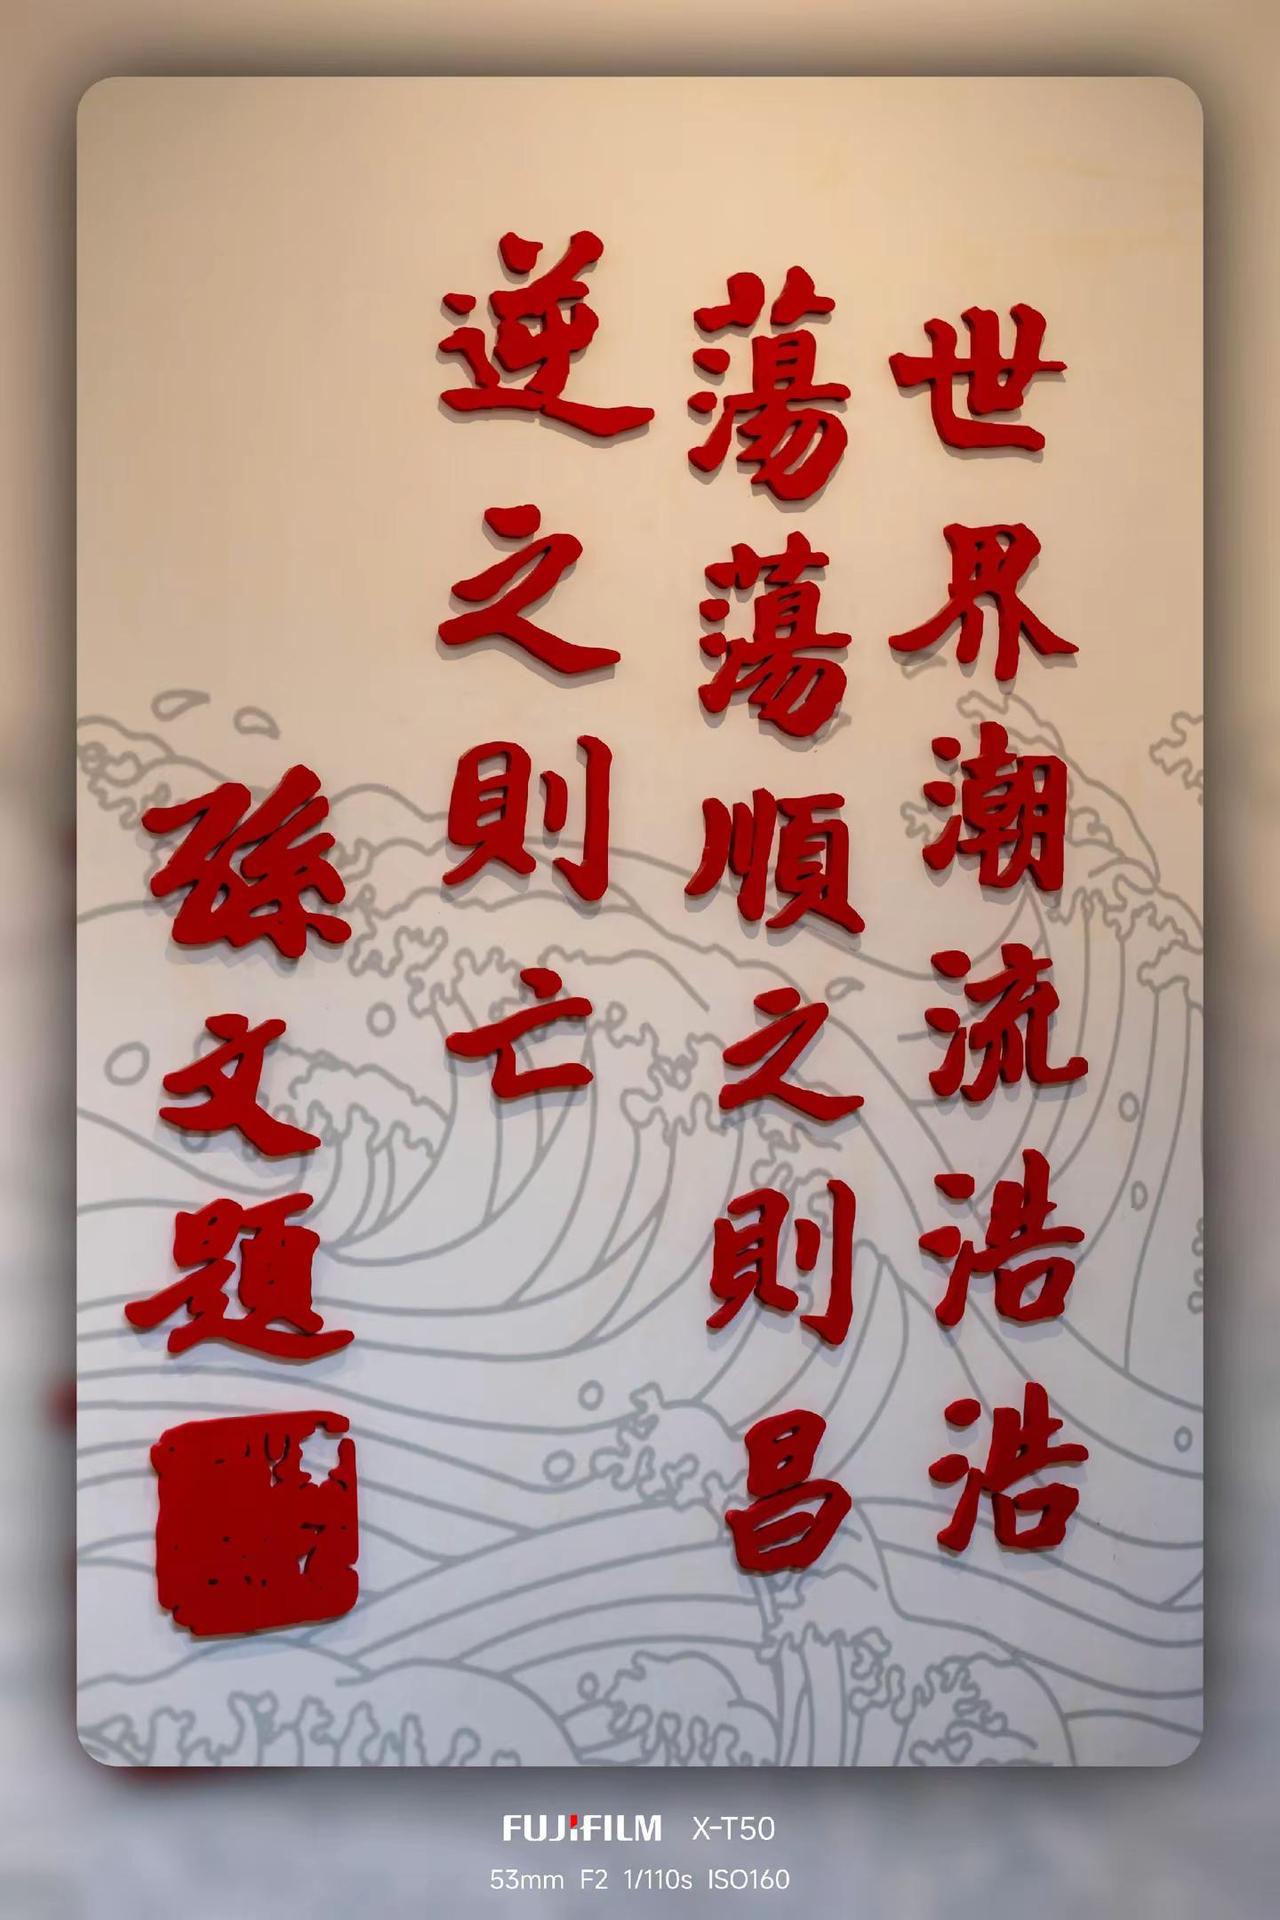 世界潮流浩浩
蕩蕩順之則昌
逆之則亡
孫文題
FUJIFILM X-T50
53mm F2 1/110s ISO160